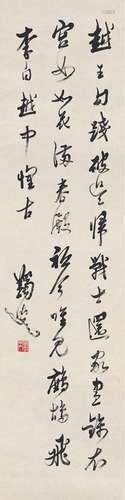 越王勾踐破吳歸戰士還家盡錦衣
宮女如花滿春殿祗今唯見鷓鴣飛
李白越中懷古